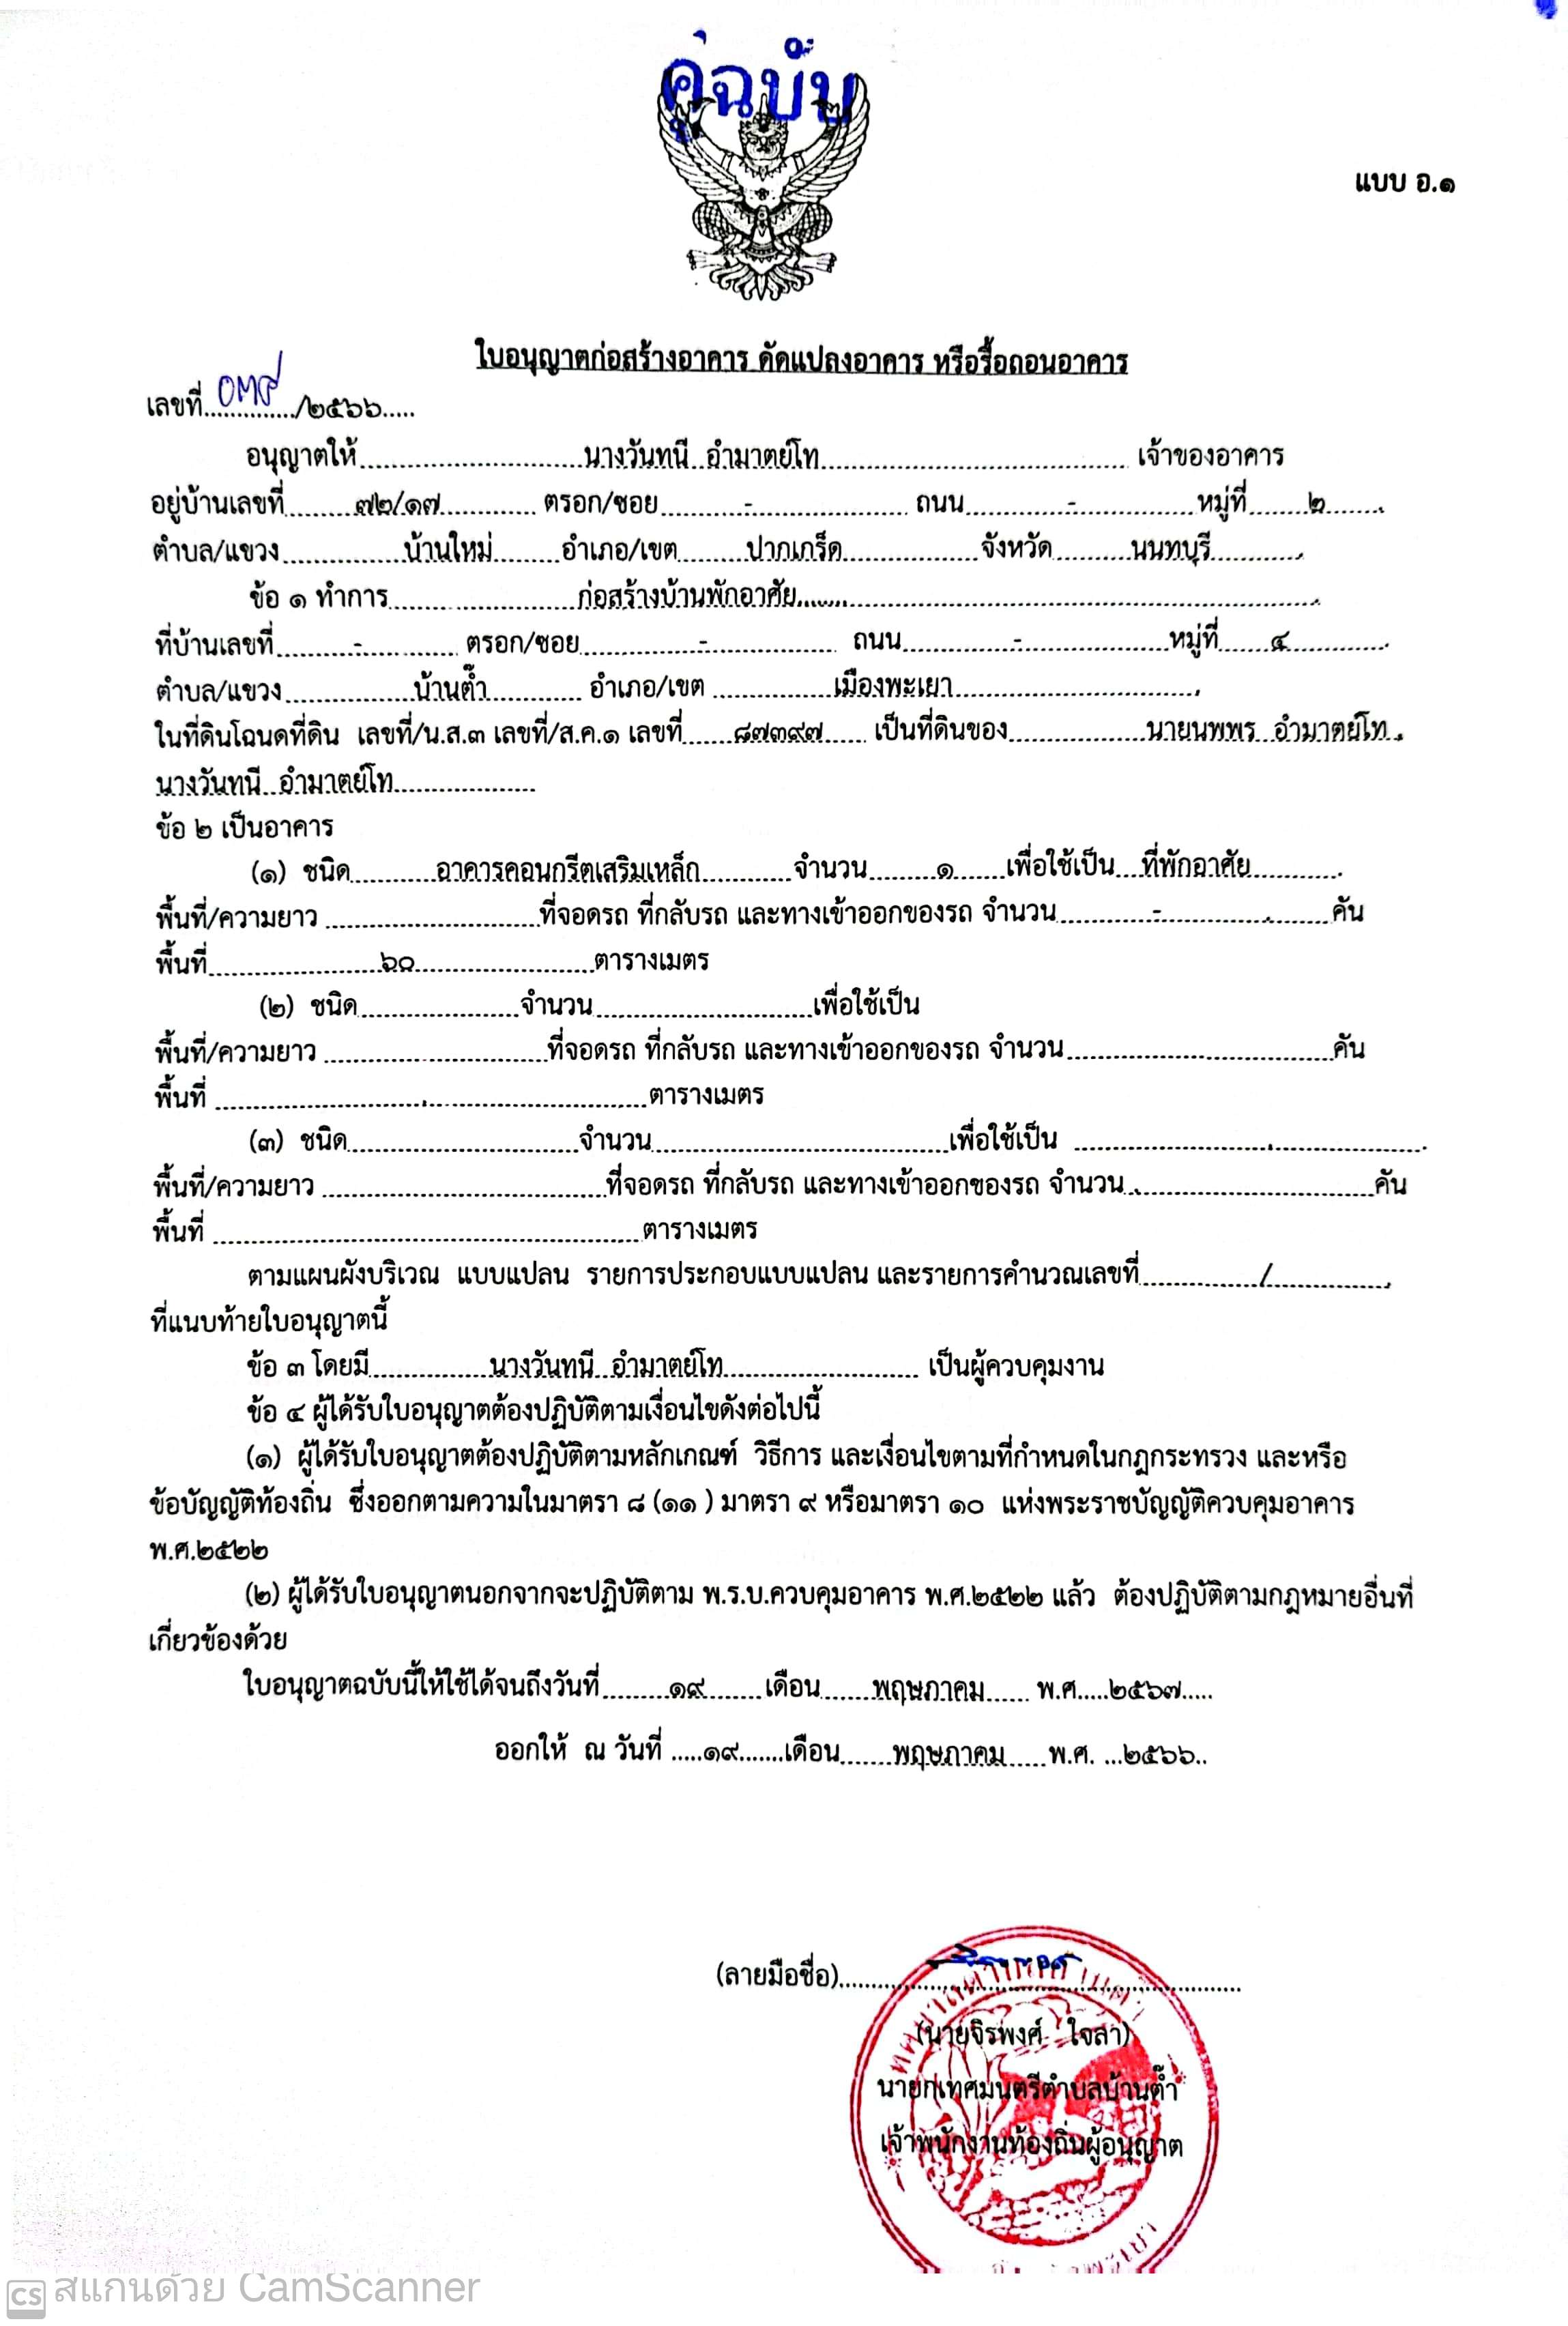 คู่ฉบับ
แบบ อ.๑
ใบอนุญาตก่อสร้างอาคาร ดัดแปลงอาคาร หรือรื้อถอนอาคาร
เลขที่ ๐๓๙/๒๕๖๖
อนุญาตให้ นางวันทนี อำมาตย์โท เจ้าของอาคาร
อยู่บ้านเลขที่ ๗๒/๑๗ ตรอก/ซอย - ถนน - หมู่ที่ ๒
ตำบล/แขวง บ้านใหม่ อำเภอ/เขต ปากเกร็ด จังหวัด นนทบุรี
ข้อ ๑ ทำการ ก่อสร้างบ้านพักอาศัย
ที่บ้านเลขที่ - ตรอก/ซอย - ถนน - หมู่ที่ ๔
ตำบล/แขวง บ้านต๊ำ อำเภอ/เขต เมืองพะเยา
ในที่ดินโฉนดที่ดิน เลขที่/น.ส.๓ เลขที่/ส.ค.๑ เลขที่ ๘๗๓๙๗ เป็นที่ดินของ นายนพพร อำมาตย์โท
นางวันทนี อำมาตย์โท
ข้อ ๒ เป็นอาคาร
(๑) ชนิด อาคารคอนกรีตเสริมเหล็ก จำนวน ๑ เพื่อใช้เป็น ที่พักอาศัย
พื้นที่/ความยาว ที่จอดรถ ที่กลับรถ และทางเข้าออกของรถ จำนวน - คัน
พื้นที่ ๖๐ ตารางเมตร
(๒) ชนิด จำนวน เพื่อใช้เป็น
พื้นที่/ความยาว ที่จอดรถ ที่กลับรถ และทางเข้าออกของรถ จำนวน คัน
พื้นที่ ตารางเมตร
(๓) ชนิด จำนวน เพื่อใช้เป็น
พื้นที่/ความยาว ที่จอดรถ ที่กลับรถ และทางเข้าออกของรถ จำนวน คัน
พื้นที่ ตารางเมตร
ตามแผนผังบริเวณ แบบแปลน รายการประกอบแบบแปลน และรายการคำนวณเลขที่ /
ที่แนบท้ายใบอนุญาตนี้
ข้อ ๓ โดยมี นางวันทนี อำมาตย์โท เป็นผู้ควบคุมงาน
ข้อ ๔ ผู้ได้รับใบอนุญาตต้องปฏิบัติตามเงื่อนไขดังต่อไปนี้
(๑) ผู้ได้รับใบอนุญาตต้องปฏิบัติตามหลักเกณฑ์ วิธีการ และเงื่อนไขตามที่กำหนดในกฎกระทรวง และหรือ
ข้อบัญญัติท้องถิ่น ซึ่งออกตามความในมาตรา ๘ (๑๑ ) มาตรา ๙ หรือมาตรา ๑๐ แห่งพระราชบัญญัติควบคุมอาคาร
พ.ศ.๒๕๒๒
(๒) ผู้ได้รับใบอนุญาตนอกจากจะปฏิบัติตาม พ.ร.บ.ควบคุมอาคาร พ.ศ.๒๕๒๒ แล้ว ต้องปฏิบัติตามกฎหมายอื่นที่
เกี่ยวข้องด้วย
ใบอนุญาตฉบับนี้ให้ใช้ได้จนถึงวันที่ ๑๙ เดือน พฤษภาคม พ.ศ. ๒๕๖๗
ออกให้ ณ วันที่ ๑๙ เดือน พฤษภาคม พ.ศ. ๒๕๖๖
(ลายมือชื่อ)
(นายจิรพงศ์ ใจลา)
นายกเทศมนตรีตำบลบ้านต๊ำ
เจ้าพนักงานท้องถิ่นผู้อนุญาต
CS สแกนด้วย CamScanner